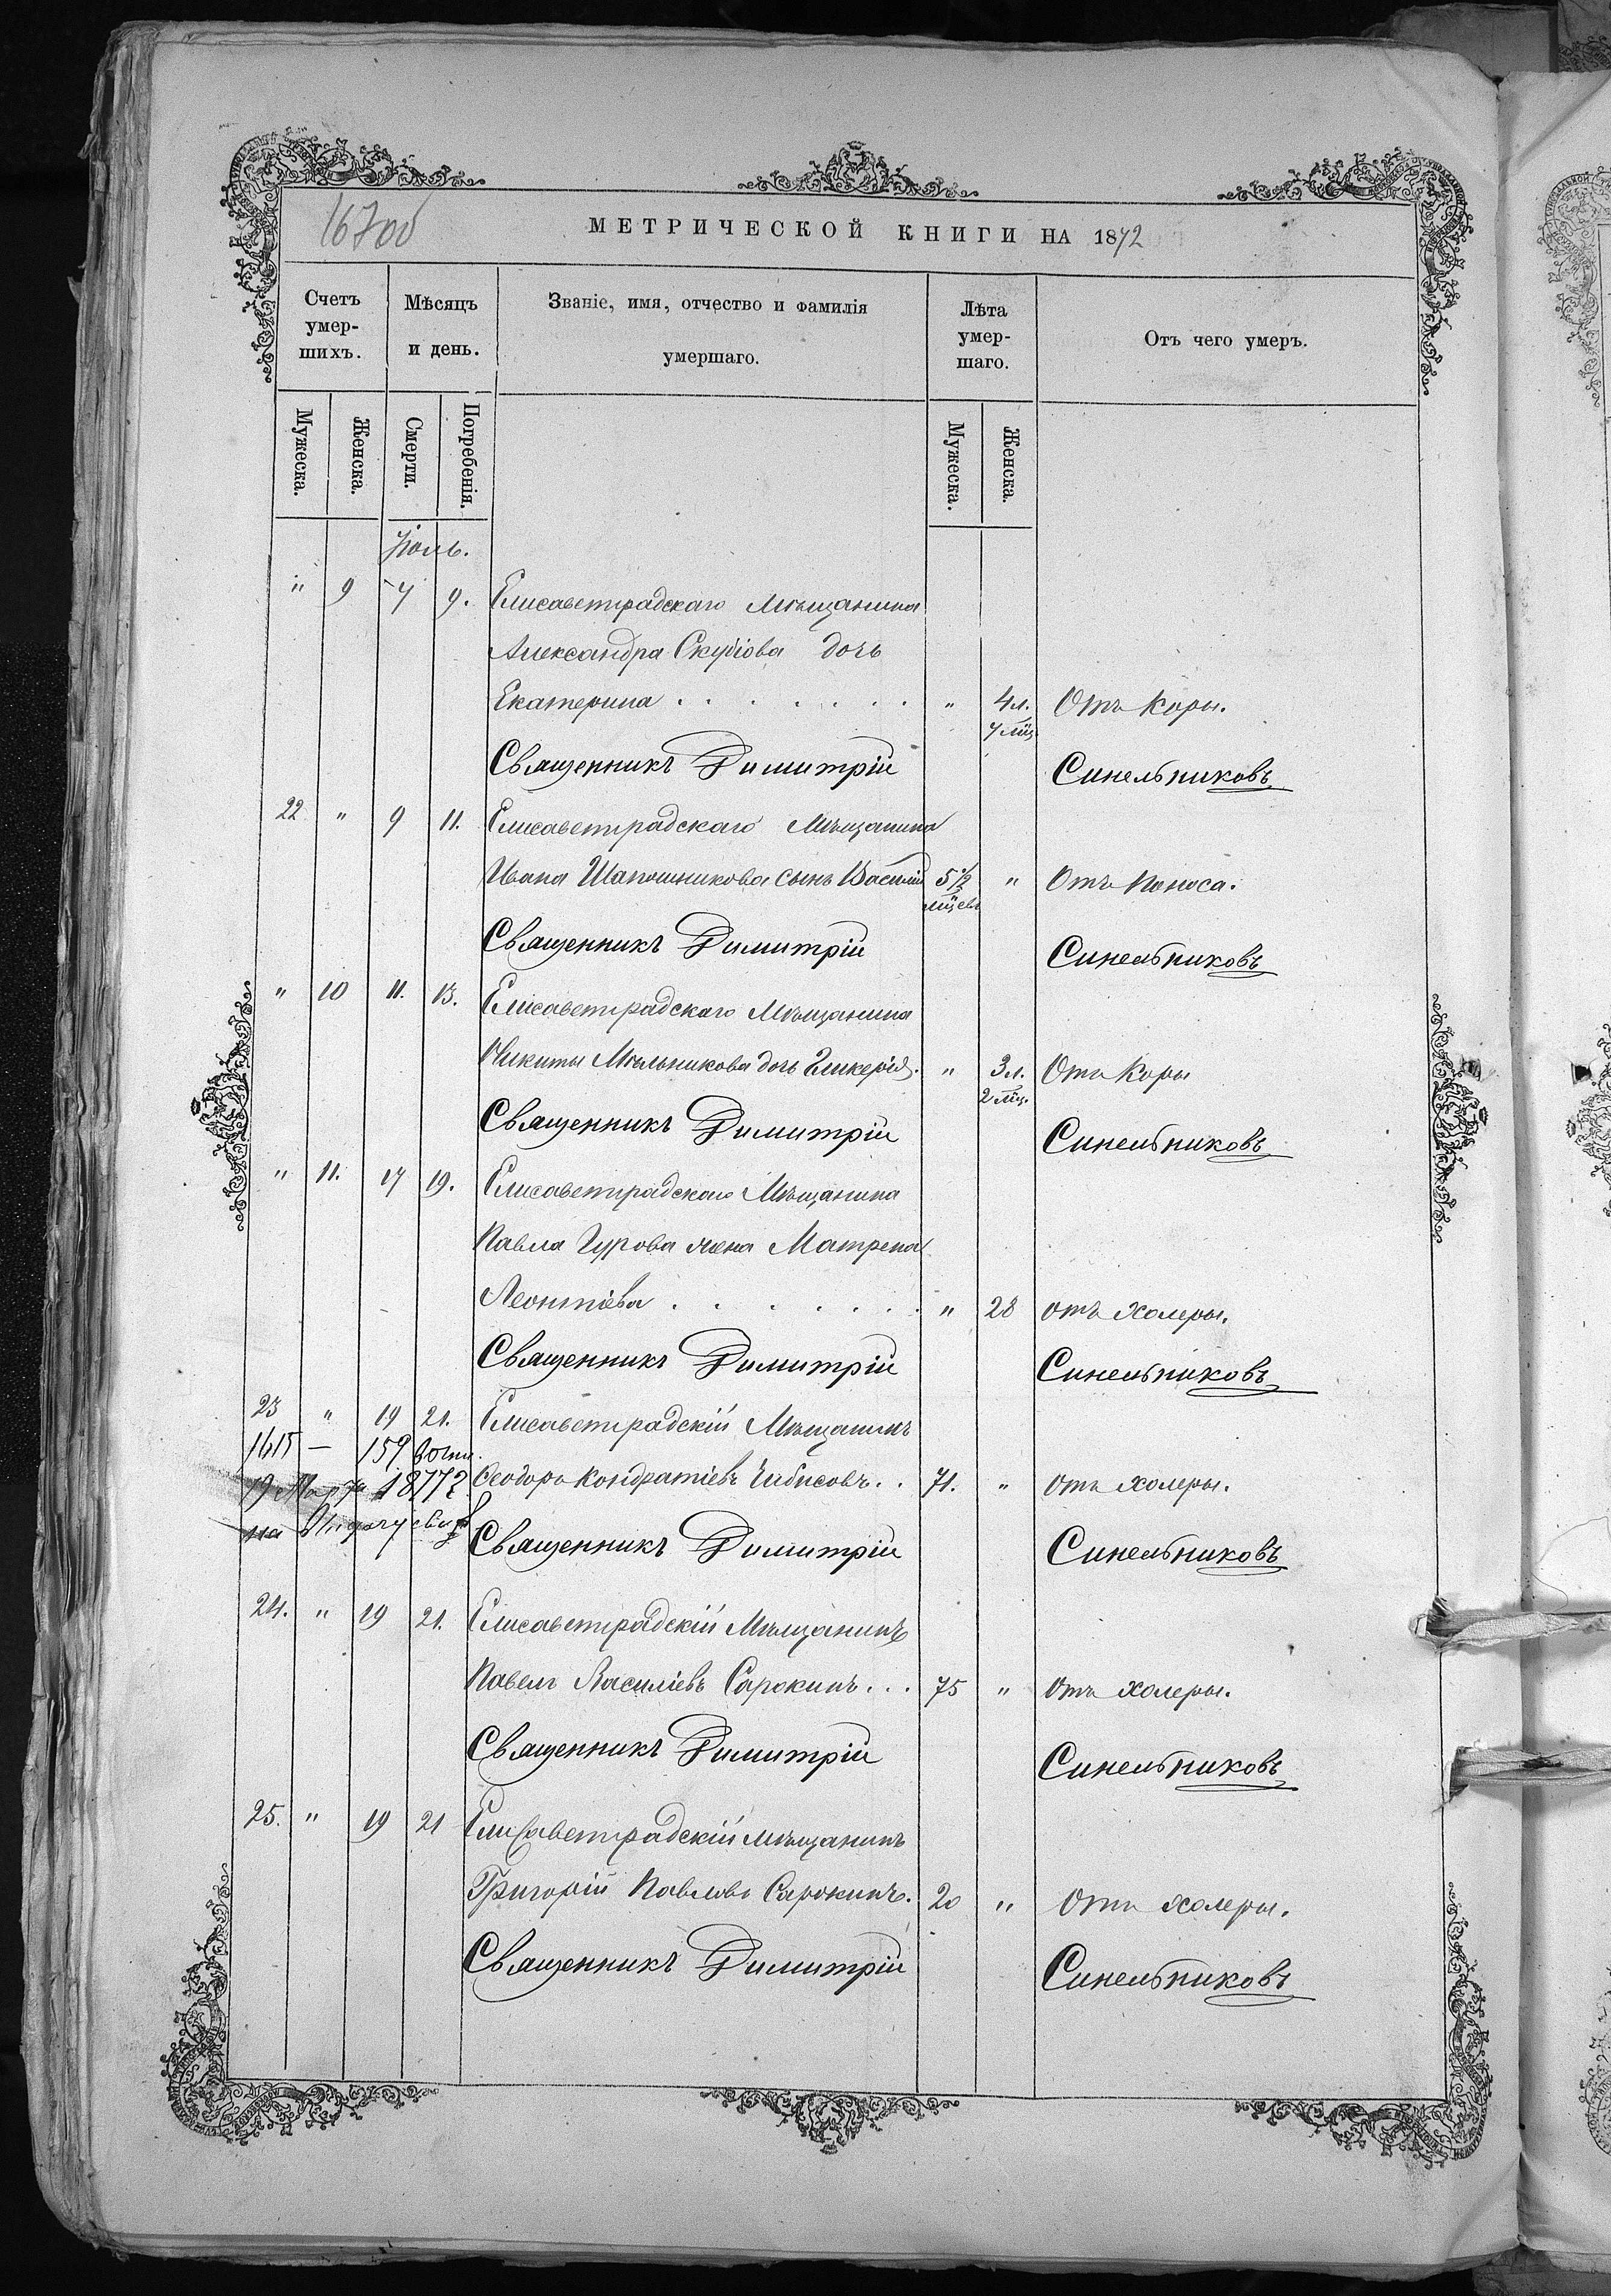 167об
МЕТРИЧЕСКОЙ КНИГИ НА 1872
Счетъ умер-шихъ. Мѣсяцъ и день. Званіе, имя, отчество и фамилія умершаго. Лѣта умер-шаго. Отъ чего умеръ.
Мужеска. Женска. Смерти. Погребенія. Мужеска. Женска.
Іюль.
" 9 7 9. Елисаветградскаго Мѣщанина
Александра Скубіова дочь
Екатерина . . . . . . . " 4 л. Отъ Коры.
7 мц.
Священникъ Димитрій Синельниковъ
22 " 9 11. Елисаветградскаго Мѣщанина
Ивана Шапошникова сынъ Василій 5 1/2 " Отъ Поноса.
мцевъ
Священникъ Димитрій Синельниковъ
" 10 11. 13. Елисаветградскаго Мѣщанина
Никиты Мѣльникова дочь Гликерія. " 3 л. Отъ Коры
2 мц.
Священникъ Димитрій Синельниковъ
" 11. 17 19. Елисаветградскаго Мѣщанина
Павла Гурова жена Матрена
Леонтіева . . . . . . " 28 отъ холеры.
Священникъ Димитрій Синельниковъ
23 " 19 21. Елисаветградскій Мѣщанинъ
1615 — 159
Ѳеодоръ Кондратіевъ Чибисовъ . . 71. " отъ холеры.
19 Марта 1877 г.
на
Священникъ Димитрій Синельниковъ
24. " 19 21. Елисаветградскій Мѣщанинъ
Павелъ Василіевъ Сарокинъ . . . 75 " отъ холеры.
Священникъ Димитрій Синельниковъ
25. " 19 21 Елисаветградскій мѣщанинъ
Григорій Павловъ Сарокинъ. 20 " Отъ холеры.
Священникъ Димитрій Синельниковъ